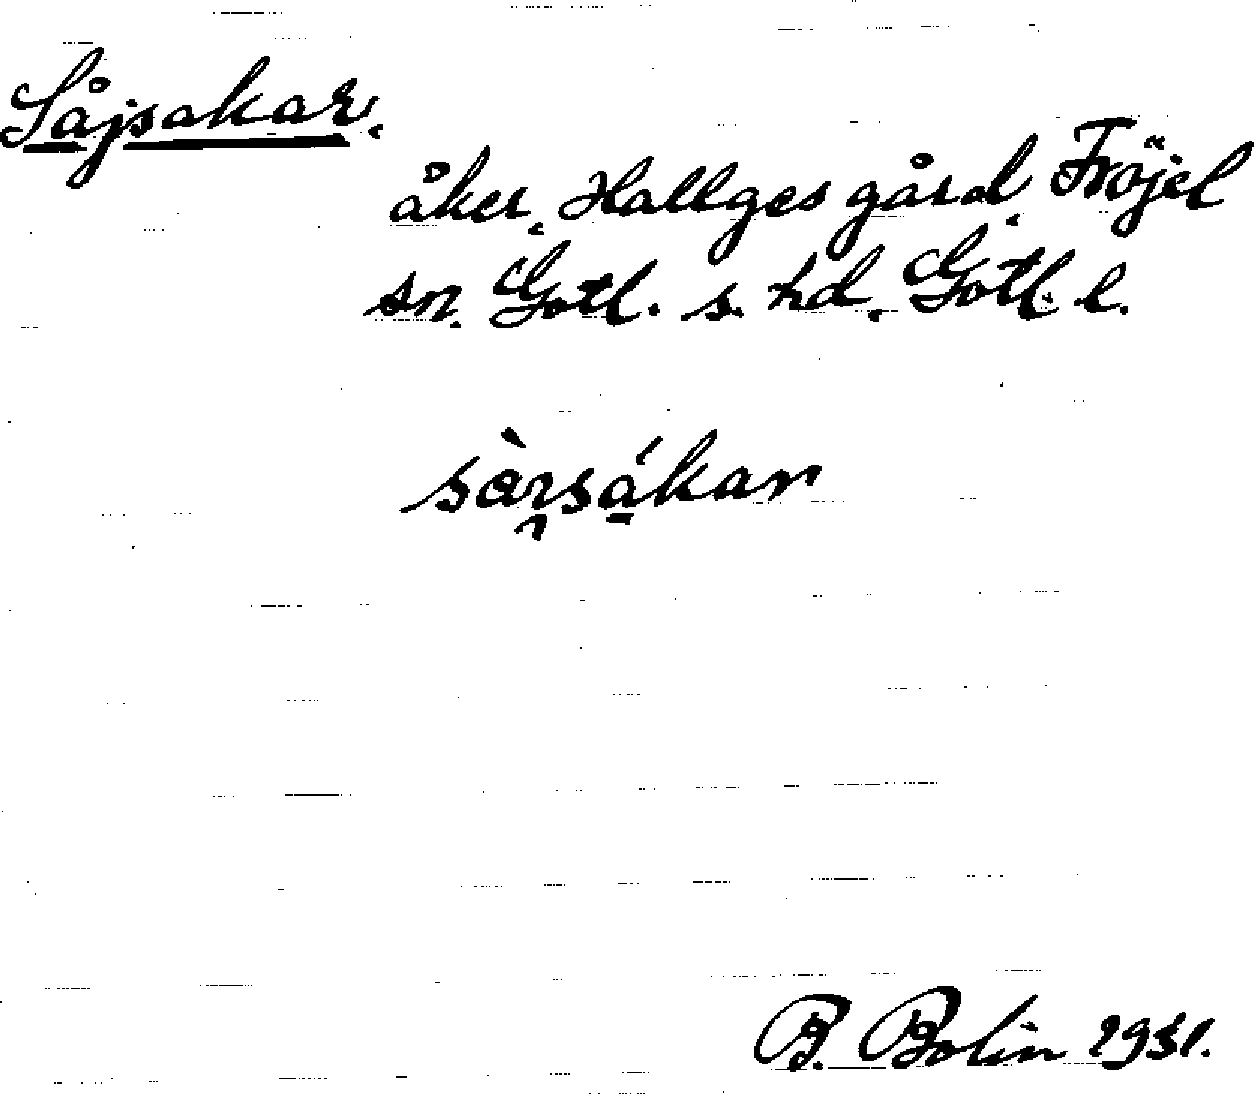 Såjsakar.
åker, Hallges gård, Fröjel
sn. Gotl. s. hd. Gotl. l.
B. Bolin 1931.